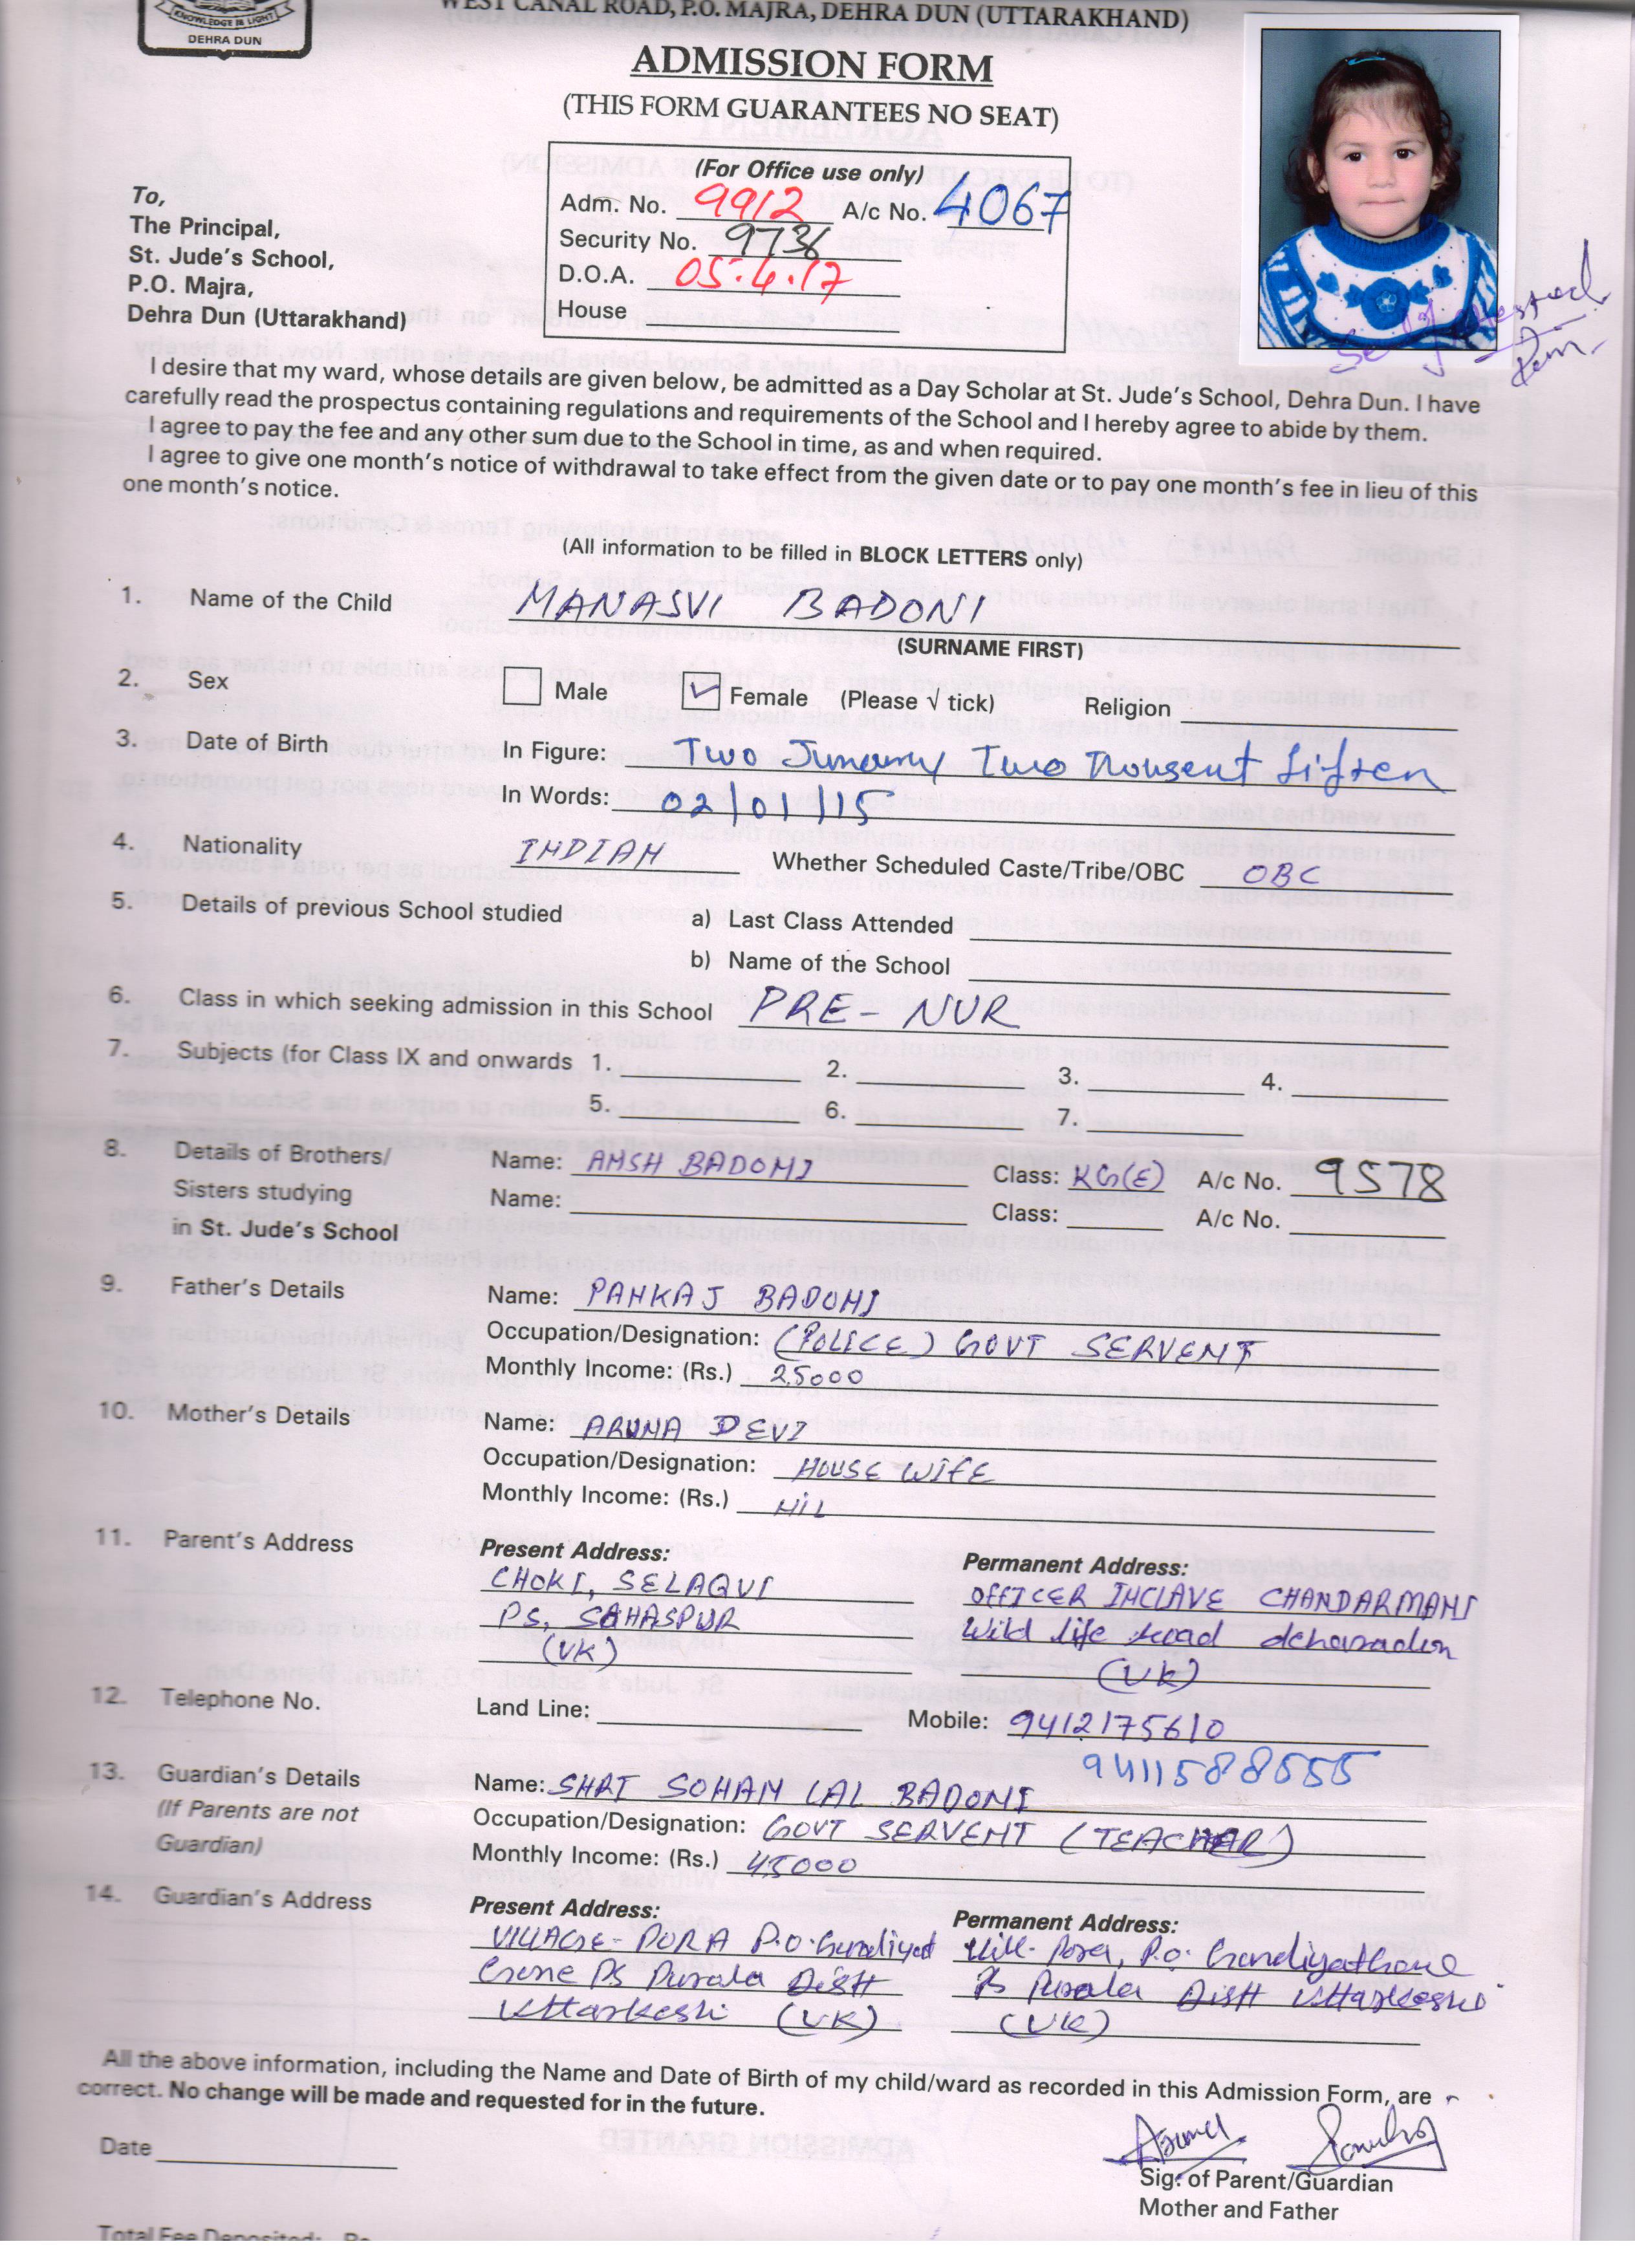 KNOWLEDGE IS LIGHT
DEHRA DUN
WEST CANAL ROAD, P.O. MAJRA, DEHRA DUN (UTTARAKHAND)
ADMISSION FORM
(THIS FORM GUARANTEES NO SEAT)
(For Office use only)
Adm. No. 9912 A/c No. 4067
Security No. 9736
D.O.A. 05.4.17
House
To,
The Principal,
St. Jude's School,
P.O. Majra,
Dehra Dun (Uttarakhand)
Self Attested
I desire that my ward, whose details are given below, be admitted as a Day Scholar at St. Jude's School, Dehra Dun. I have
carefully read the prospectus containing regulations and requirements of the School and I hereby agree to abide by them.
I agree to pay the fee and any other sum due to the School in time, as and when required.
I agree to give one month's notice of withdrawal to take effect from the given date or to pay one month's fee in lieu of this
one month's notice.
(All information to be filled in BLOCK LETTERS only)
1. Name of the Child MANASVI BADONI
(SURNAME FIRST)
2. Sex Male Female (Please √ tick) Religion
3. Date of Birth In Figure: Two Two fiften
In Words: 02/01/15
4. Nationality INDIAN Whether Scheduled Caste/Tribe/OBC OBC
5. Details of previous School studied a) Last Class Attended
b) Name of the School
6. Class in which seeking admission in this School PRE-NUR
7. Subjects (for Class IX and onwards 1. 2. 3. 4.
5. 6. 7.
8. Details of Brothers/ Name: ANSH BADONI Class: KG(E) A/c No. 9578
Sisters studying Name: Class: A/c No.
in St. Jude's School
9. Father's Details Name: PANKAJ BADONI
Occupation/Designation: (POLICE) GOVT SERVENT
Monthly Income: (Rs.) 25000
10. Mother's Details Name: ARUNA DEVI
Occupation/Designation: HOUSE WIFE
Monthly Income: (Rs.) NIL
11. Parent's Address Present Address: Permanent Address:
CHOKI, SELAQUI OFFICER INCLAVE CHANDARMANI
PS, SAHASPUR Wild life Road deharadun
(UK) (UK)
12. Telephone No. Land Line: Mobile: 9412175610
9411588555
13. Guardian's Details Name: SHRI SOHAN LAL BADONI
(If Parents are not Occupation/Designation: GOVT SERVENT (TEACHAR)
Guardian) Monthly Income: (Rs.) 45000
14. Guardian's Address Present Address: Permanent Address:
VILLAGE- PORA P.O. Gundiyat Vill- Pora, P.O. Gundiyatgaue
PS Purola Distt PS Purola Distt Uttarkashi
Uttarkashi (UK) (UK)
All the above information, including the Name and Date of Birth of my child/ward as recorded in this Admission Form, are
correct. No change will be made and requested for in the future.
Date
Sig. of Parent/Guardian
Mother and Father
Total Fee Deposited: Rs.